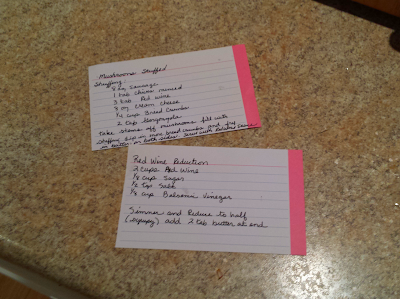 Mushrooms Stuffed
Stuffing:
8 oz Sausage
1 tab chives minced
3 tab Red wine
8 oz Cream cheese
1/4 cup Bread Crumbs
2 cup Gorgonzola
Take stems off mushrooms fill with
Stuffing Dip in more bread crumbs and fry
butter on both sides. Serve with Balsamic
Red Wine Reduction
2 cups Red Wine
1/8 cup Sugar
1/2 tsp Salt
1/8 cup Balsamic Vinegar
Simmer and Reduce to half
(syrupy) add 2 tab butter at end